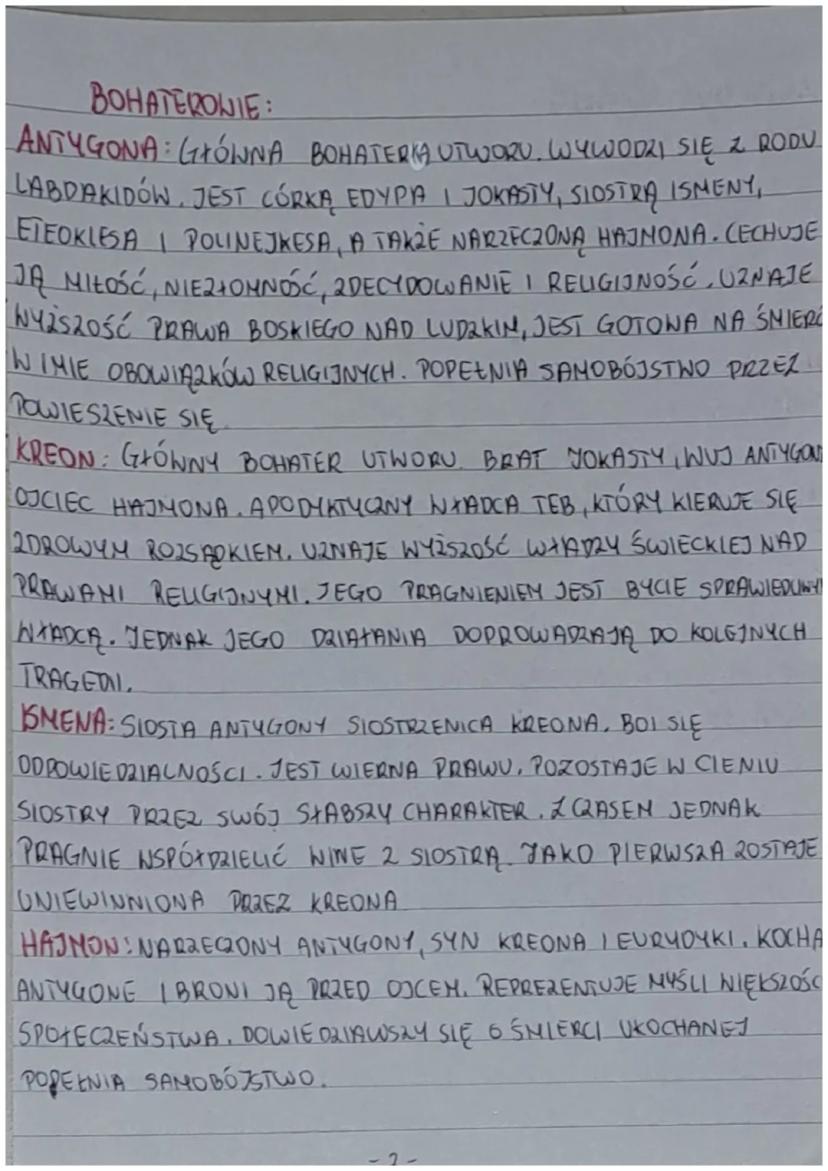 BOHATEROWIE:
ANTYGONA: GŁÓWNA BOHATERKA UTWORU. WYWODZI SIĘ Z RODU
LABDAKIDÓW. JEST CÓRKĄ EDYPA I JOKASTY, SIOSTRĄ ISMENY,
ETEOKLESA I POLINEJKESA, A TAKŻE NARZECZONĄ HAJMONA. CECHUJE
JĄ MIŁOŚĆ, NIEZŁOMNOŚĆ, ZDECYDOWANIE I RELIGIJNOŚĆ. UZNAJE
WYŻSZOŚĆ PRAWA BOSKIEGO NAD LUDZKIM, JEST GOTOWA NA ŚMIERĆ
W IMIE OBOWIĄZKÓW RELIGIJNYCH. POPEŁNIA SAMOBÓJSTWO PRZEZ
POWIESZENIE SIĘ
KREON: GŁÓWNY BOHATER UTWORU. BRAT JOKASTY, WUJ ANTYGON
OJCIEC HAJMONA. APODYKTYCZNY WŁADCA TEB, KTÓRY KIERUJE SIĘ
ZDROWYM ROZSĄDKIEM. UZNAJE WYŻSZOŚĆ WŁADZY ŚWIECKIEJ NAD
PRAWAMI RELIGIJNYMI. JEGO PRAGNIENIEM JEST BYCIE SPRAWIEDLIWY
WŁADCĄ. JEDNAK JEGO DZIAŁANIA DOPROWADZAJĄ DO KOLEJNYCH
TRAGEDII.
ISMENA: SIOSTA ANTYGONY SIOSTRZENICA KREONA. BOI SIĘ
ODPOWIEDZIALNOŚCI. JEST WIERNA PRAWU. POZOSTAJE W CIENIU
SIOSTRY PRZEZ SWÓJ SŁABSZY CHARAKTER. Z CZASEM JEDNAK
PRAGNIE WSPÓŁDZIELIĆ WINE Z SIOSTRĄ. JAKO PIERWSZA ZOSTAJE
UNIEWINNIONA PRZEZ KREONA
HAJMON: NARZECZONY ANTYGONY, SYN KREONA I EURYDYKI. KOCHA
ANTYGONE I BRONI JĄ PRZED OJCEM. REPREZENTUJE MYŚLI WIĘKSZOŚC
SPOŁECZEŃSTWA. DOWIEDZIAWSZY SIĘ O ŚMIERCI UKOCHANEJ
POPEŁNIA SAMOBÓJSTWO.